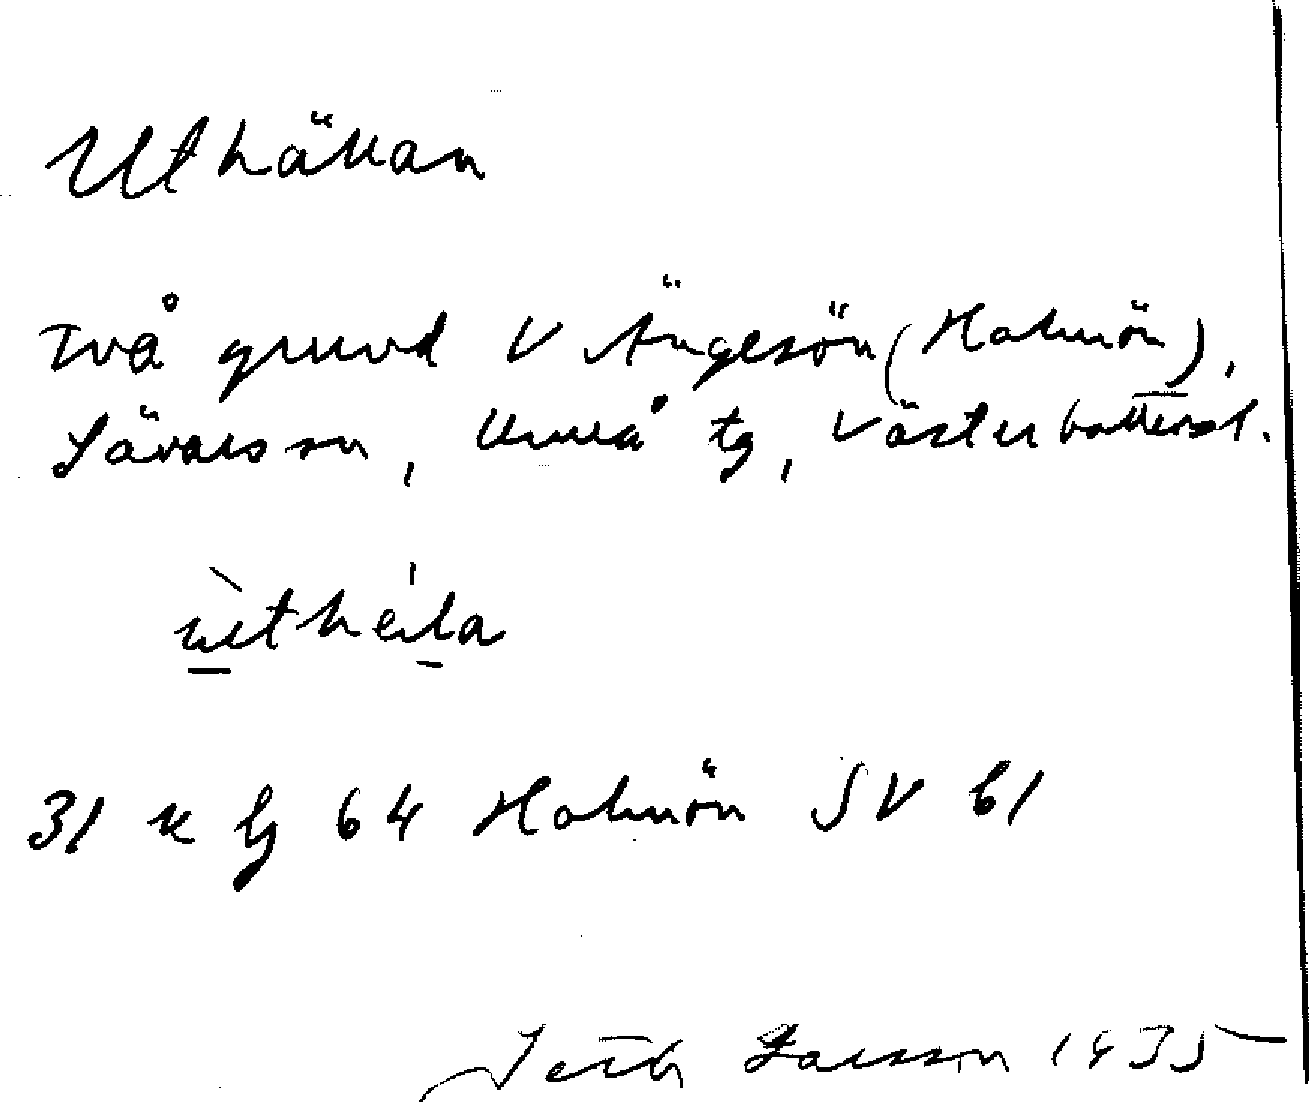 Uthällan
Två grund V Ängesön (Holmön),
Sävars sn, Umeå tg, Västerbottens l.
ùthéla
31 k lg 64 Holmön SV 61
Larsson 1935